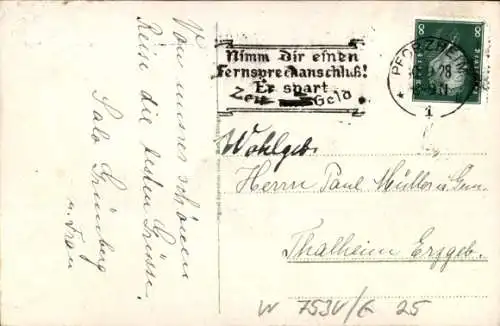 Von unserer schönen
Reise die besten Grüsse.
Salo Grünberg
u. Frau
Nimm Dir einen
Fernsprechanschluß!
Er spart
Zeit und Geld
PFORZHEIM
28
1
8
8
Wohlgeb.
Herrn Paul Müller u. Gem.
Thalheim Erzgeb.
W 7534/6 25